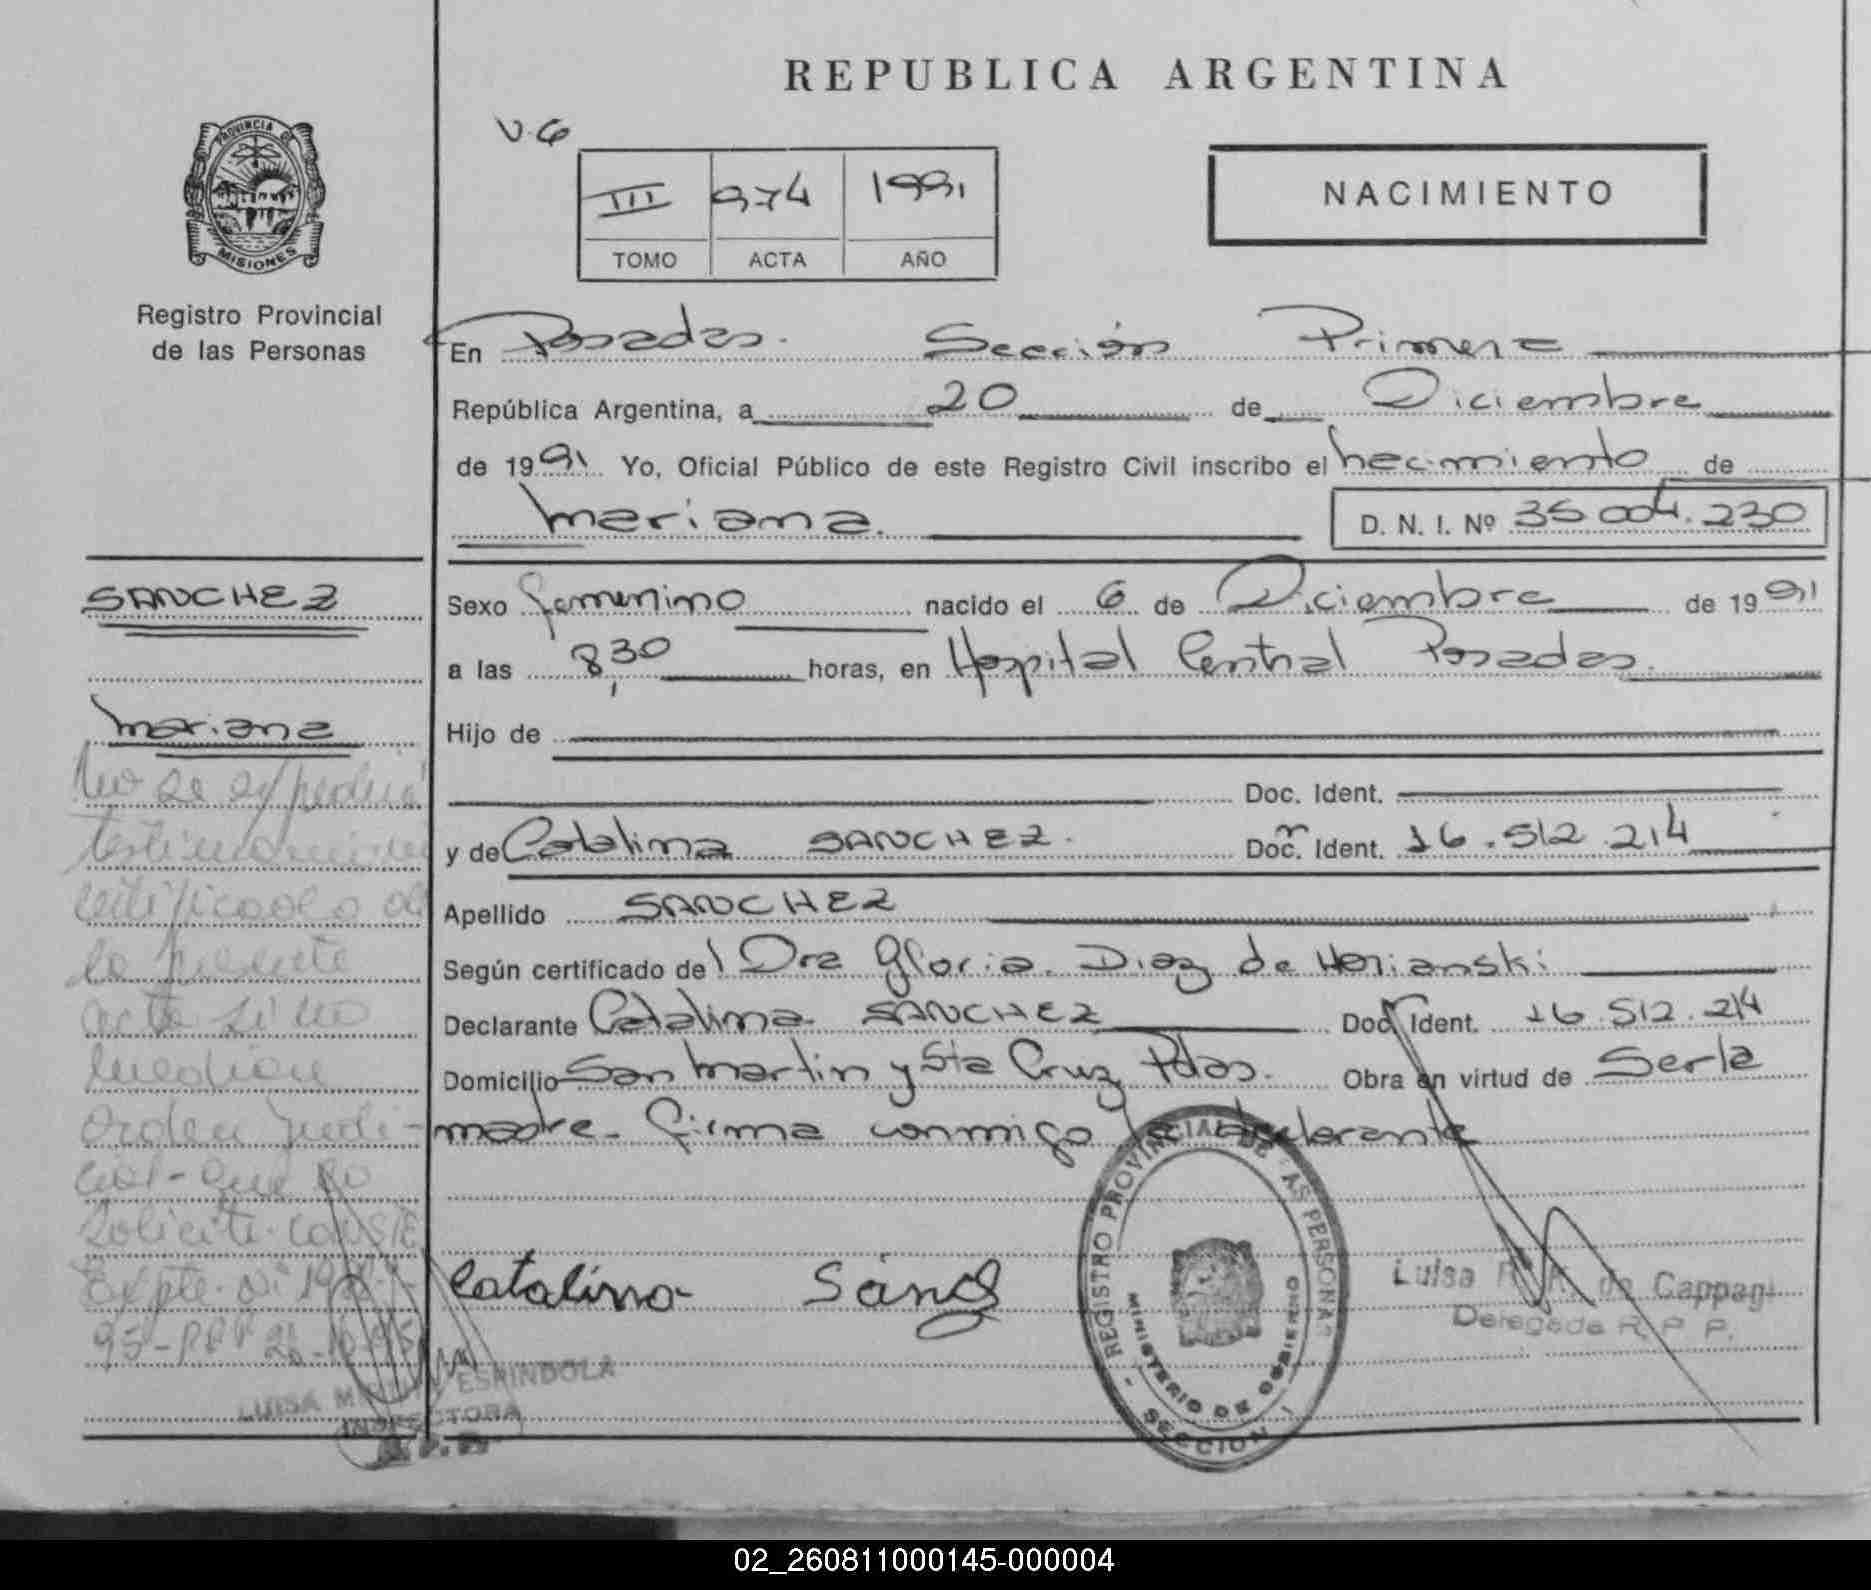 REPUBLICA ARGENTINA
V.6
III 974 1991
TOMO ACTA AÑO
NACIMIENTO
PROVINCIA DE
MISIONES
Registro Provincial
de las Personas
En Posadas. Sección Primera
República Argentina, a 20 de Diciembre
de 1991 Yo, Oficial Público de este Registro Civil inscribo el nacimiento de
Mariana.
D. N. I. Nº 35.004.230
SANCHEZ
Mariana
Sexo femenino nacido el 6 de Diciembre de 1991
a las 8,30 horas, en Hospital Central Posadas.
Hijo de
Doc. Ident.
y de Catalina SANCHEZ. Doc. Ident. 16.512.214
Apellido SANCHEZ
Según certificado del Dra Gloria Diaz de
Declarante Catalina SANCHEZ Doc. Ident. 16.512.214
Domicilio San Martin y Sta Cruz Pdas. Obra en virtud de Ser la
madre. firma conmigo la declarante
No se expedirá
testimonio ni
certificado de
la presente
acta si no
median
orden judi-
cial que lo
solicite. CONSTE
Expte. Nº
95-
Catalina Sánz
REGISTRO PROVINCIAL DE LAS PERSONAS
MINISTERIO DE GOBIERNO
SECCION 1
Luisa R. de
Delegada R. P. P.
LUISA ESPINDOLA
INSPECTORA
R.P.P.
02_260811000145-000004